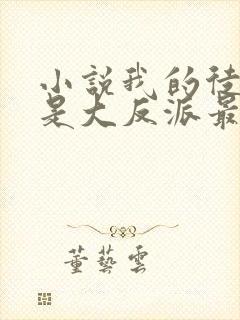 小説我的徒
是大反派最
董藝雲